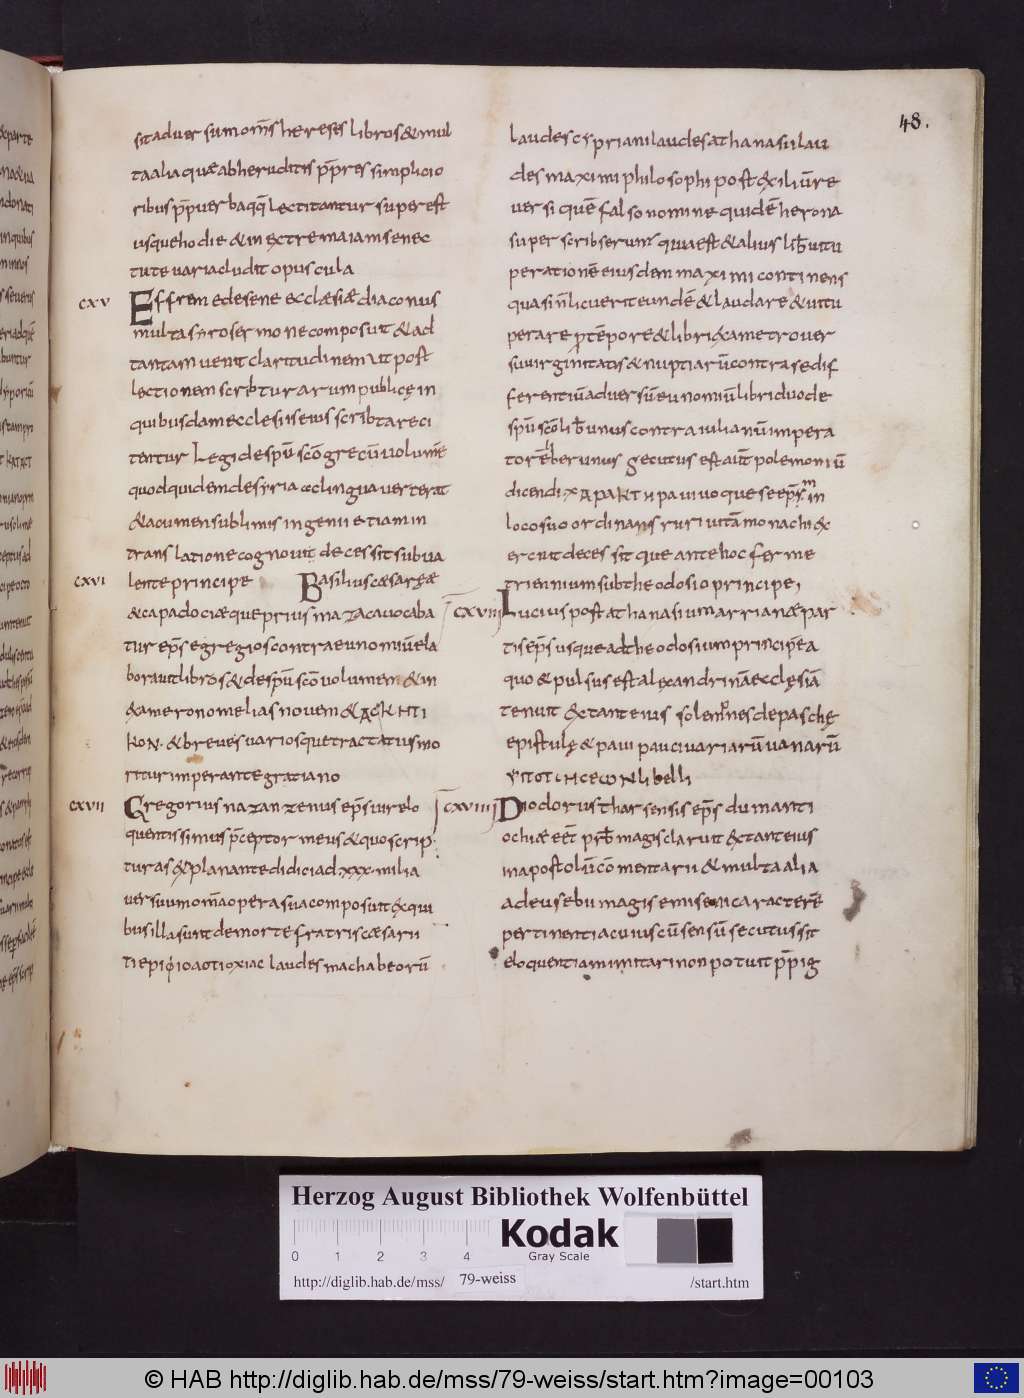 48.
sit aduersum om̄s hereses libros & mul
ta alia quæ ab heruditis pp̄res simplicio
ribus pp̄ uerba qaq̄ lectitantur superest
usque hodie & in extrema iam senec
tute uaria cludit opuscula
cxv Effrem edesene ecclæsiæ diaconus
multa syro sermone composuit & ad
tantam uenit claritudinem ut post
lectionem scribturarum publicę in
quibusdam ecclesiis eius scribta reci
tantur Legi de sp̄u sc̄o grecū uolumē
quod quidem de syriaca lingua uerterat
& acumen sublimis ingenii etiam in
translatione cognouit decessit sub ua
cxvi lente principe Basilius cæsaręæ
& capadociæ que prius mazaca uocaba
tur ep̄s egregios contra eunomiū ela
borauit libros & de sp̄u sc̄o uolumen & in
exameron omelias nouem & ΑϹΚΗΤΙ
ΚΟΝ· & breues uariosque tractatus mo
ritur imperante gratiano
cxvii Gregorius nazanzenus ep̄s uir elo
quentissimus p̄ceptor meus & quo scrip
turas explanante didici ad xxx· milia
uersuum om̄a opera sua composuit ex qui
bus illa sunt de morte fratris cæsarii
laudes machabeorū
laudes cypriani laudes athanasii lau
des maximi philosophi post exiliū re
uersi quē falso nomine quidē herona
superscribserunt quia est & alius lib̄ uitu
perationē eiusdem maximi continens
quasi n̄ licuerit eundē & laudare & uitu
perare p̄ tēpore & liber exametro uer
su uirginitatis & nuptiarū contra se dif
ferentiū aduersū eunomiū libri duo de
sp̄u sc̄o lib̄ unus contra iulianū impera
torē liber unus secutus est aut̄ polemoniū
dicendi ΧΑΡΑΚΤΗΡΑ uiuoque se ep̄m in
loco suo ordinans ruri uitā monachi ex
ercuit decessitque ante hoc ferme
triennium sub theodosio principe,
cxviii Lucius post athanasium arrianæ par
tis ep̄s usque ad theodosium principē a
quo & pulsus est alexandrinā ecclęsiā
tenuit extant eius solemnes de paschę
epistulę & paui pauci uariarū uanarū
libelli
cxviiii Diodorus tharsensis ep̄s dum anti
ochiæ eēt prb̄ magis claruit extant eius
in apostolū cōmentarii & multa alia
ad eusebii magis emiseni caracterē
pertinentia cuius cū sensū secutus sit
eloquentiam imitari non potuit pp̄ ig
Herzog August Bibliothek Wolfenbüttel
0 1 2 3 4
Kodak
Gray Scale
http://diglib.hab.de/mss/ 79-weiss /start.htm
© HAB http://diglib.hab.de/mss/79-weiss/start.htm?image=00103